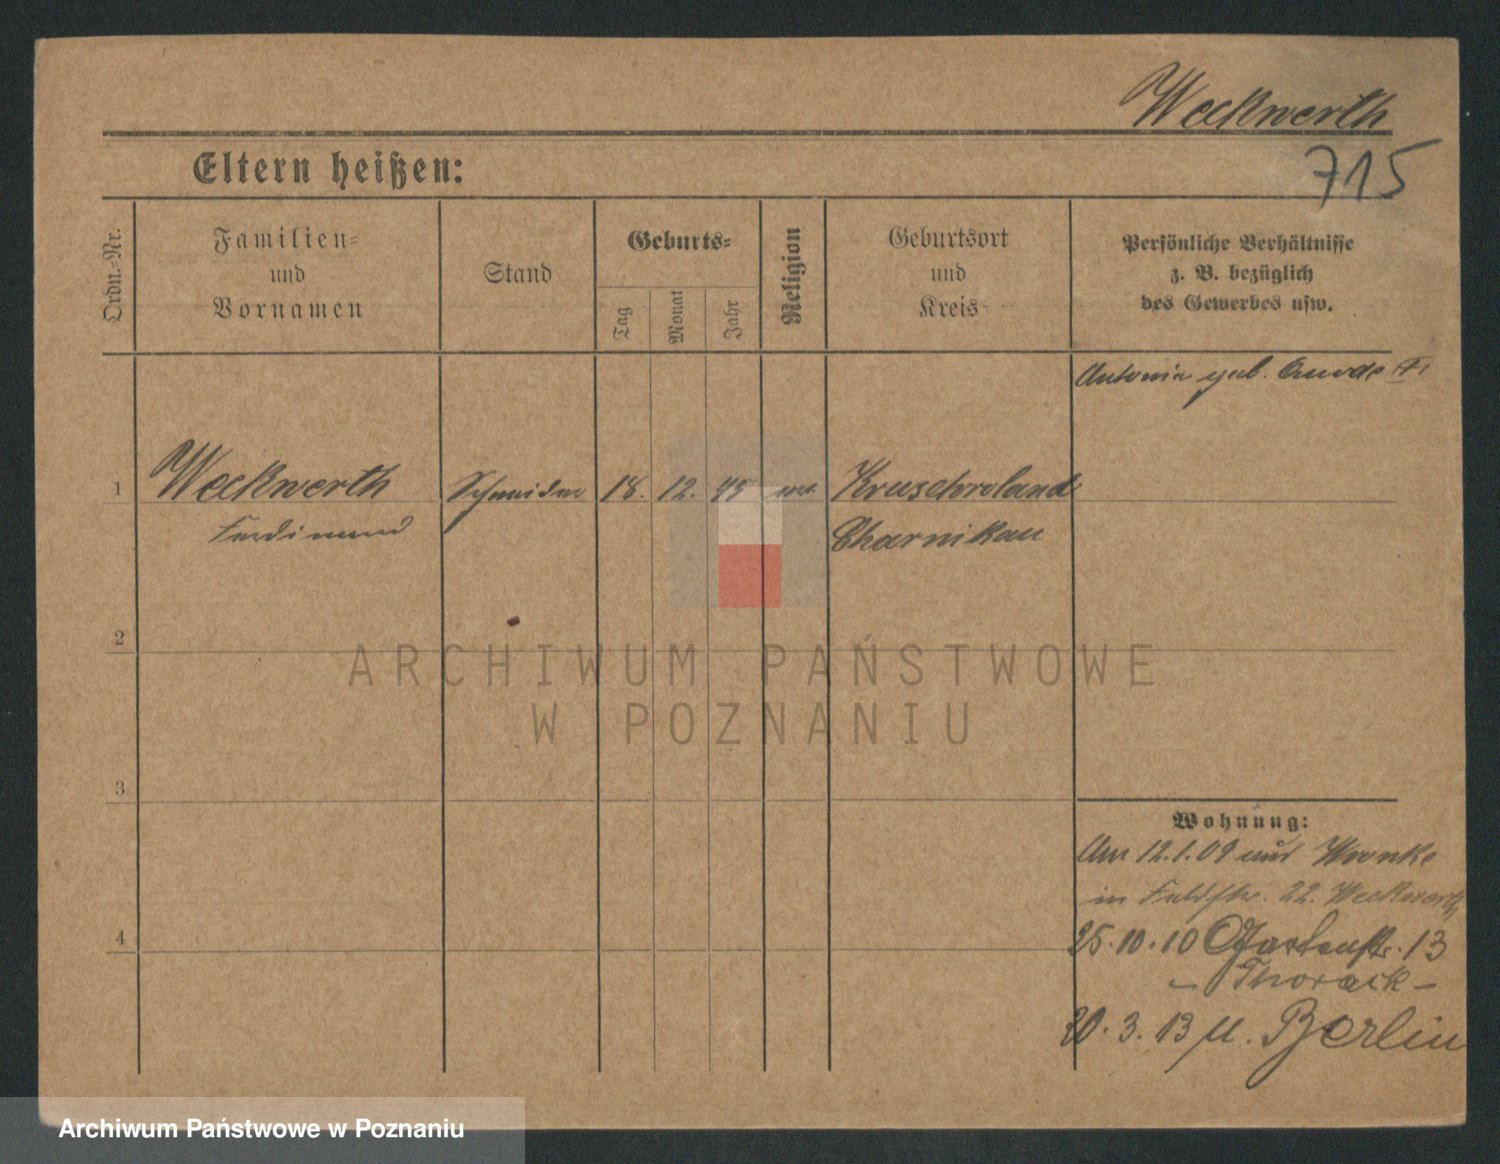 Weckwerth
Eltern heißen:
715
Ordn.-Nr.
Familien-
und
Vornamen
Stand
Geburts-
Tag
Monat
Jahr
Religion
Geburtsort
und
Kreis
Persönliche Verhältnisse
z. B. bezüglich
des Gewerbes usw.
Antonie geb.
1
Weckwerth
Ferdinand
Schneider
18.
12.
45
ev.
Charnikau
2
3
4
Wohnung:
Am 12.1.09 aus Wronke
in Feldstr. 22. Weckwerth
25.10.10 Gartenstr. 13
- Thorack -
20.3.13 n. Berlin
ARCHIWUM PAŃSTWOWE
W POZNANIU
Archiwum Państwowe w Poznaniu